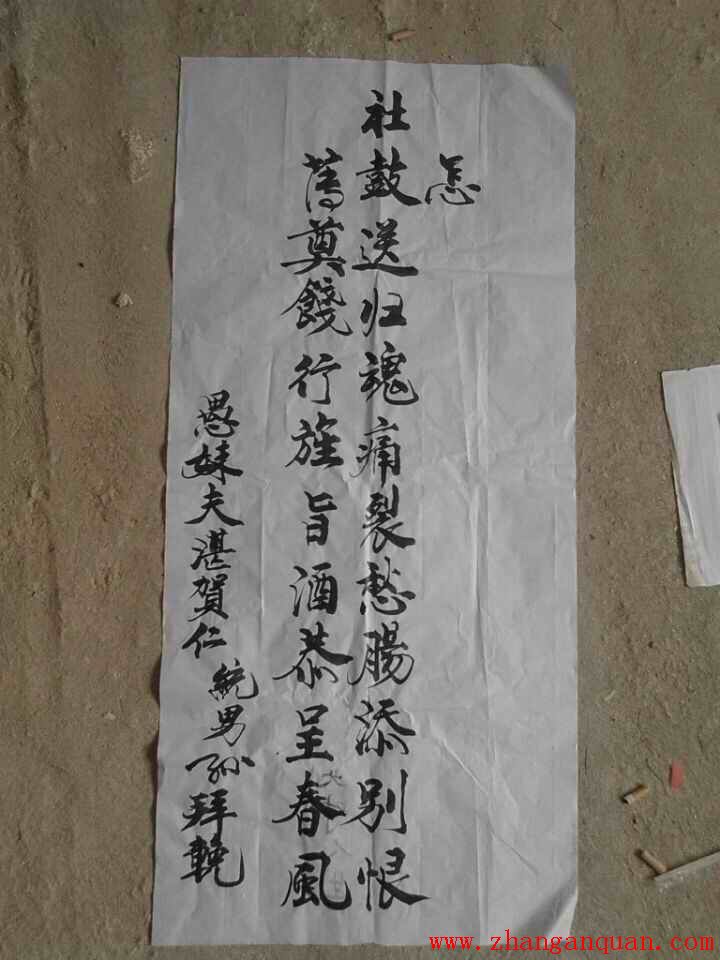 怎
社鼓送归魂痛裂愁腸添别恨
薄奠餞行旌旨酒恭呈春風
愚妹夫湛賀仁
統男孙拜輓
www.zhanganquan.com